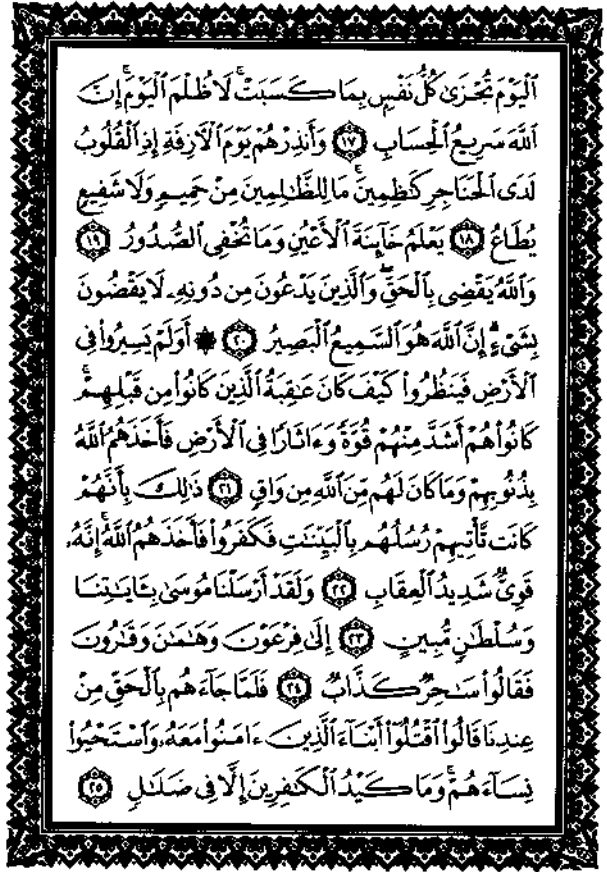 ٱلْيَوْمَ تُجْزَىٰ كُلُّ نَفْسٍۭ بِمَا كَسَبَتْ ۚ لَا ظُلْمَ ٱلْيَوْمَ ۚ إِنَّ
ٱللَّهَ سَرِيعُ ٱلْحِسَابِ ١٧ وَأَنذِرْهُمْ يَوْمَ ٱلْـَٔازِفَةِ إِذِ ٱلْقُلُوبُ
لَدَى ٱلْحَنَاجِرِ كَٰظِمِينَ ۚ مَا لِلظَّٰلِمِينَ مِنْ حَمِيمٍ وَلَا شَفِيعٍ
يُطَاعُ ١٨ يَعْلَمُ خَآئِنَةَ ٱلْأَعْيُنِ وَمَا تُخْفِى ٱلصُّدُورُ ١٩
وَٱللَّهُ يَقْضِى بِٱلْحَقِّ ۖ وَٱلَّذِينَ يَدْعُونَ مِن دُونِهِۦ لَا يَقْضُونَ
بِشَىْءٍ ۗ إِنَّ ٱللَّهَ هُوَ ٱلسَّمِيعُ ٱلْبَصِيرُ ٢٠ ۞ أَوَلَمْ يَسِيرُوا۟ فِى
ٱلْأَرْضِ فَيَنظُرُوا۟ كَيْفَ كَانَ عَٰقِبَةُ ٱلَّذِينَ كَانُوا۟ مِن قَبْلِهِمْ ۚ
كَانُوا۟ هُمْ أَشَدَّ مِنْهُمْ قُوَّةً وَءَاثَارًا فِى ٱلْأَرْضِ فَأَخَذَهُمُ ٱللَّهُ
بِذُنُوبِهِمْ وَمَا كَانَ لَهُم مِّنَ ٱللَّهِ مِن وَاقٍ ٢١ ذَٰلِكَ بِأَنَّهُمْ
كَانَت تَّأْتِيهِمْ رُسُلُهُم بِٱلْبَيِّنَٰتِ فَكَفَرُوا۟ فَأَخَذَهُمُ ٱللَّهُ ۚ إِنَّهُۥ
قَوِىٌّ شَدِيدُ ٱلْعِقَابِ ٢٢ وَلَقَدْ أَرْسَلْنَا مُوسَىٰ بِـَٔايَٰتِنَا
وَسُلْطَٰنٍ مُّبِينٍ ٢٣ إِلَىٰ فِرْعَوْنَ وَهَٰمَٰنَ وَقَٰرُونَ
فَقَالُوا۟ سَٰحِرٌ كَذَّابٌ ٢٤ فَلَمَّا جَآءَهُم بِٱلْحَقِّ مِنْ
عِندِنَا قَالُوا۟ ٱقْتُلُوٓا۟ أَبْنَآءَ ٱلَّذِينَ ءَامَنُوا۟ مَعَهُۥ وَٱسْتَحْيُوا۟
نِسَآءَهُمْ ۚ وَمَا كَيْدُ ٱلْكَٰفِرِينَ إِلَّا فِى ضَلَٰلٍ ٢٥